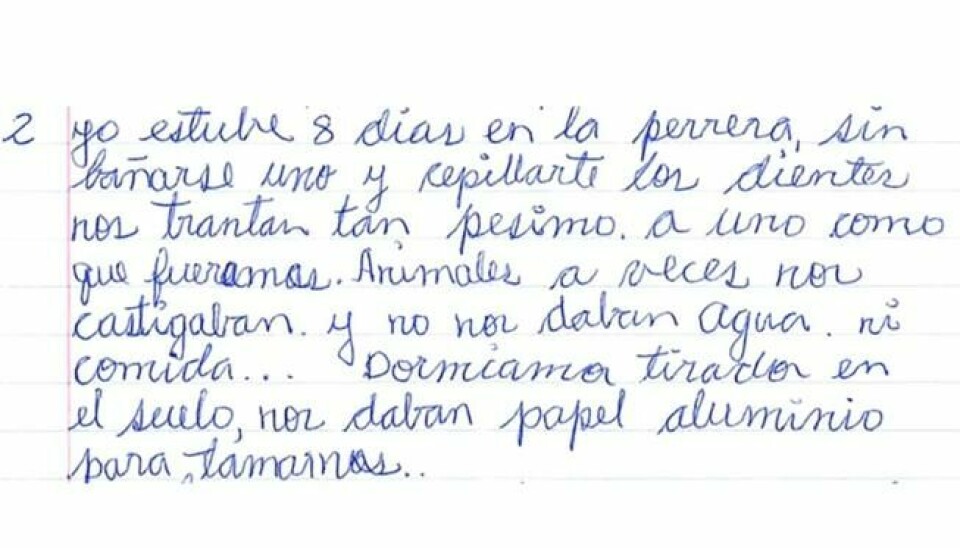 2 yo estube 8 dias en la perrera, sin
bañarse uno y cepillarte los dientes
nos trantan tan pesimo. a uno como
que fueramos. Animales a veces nos
castigaban. y no nos daban agua. ni
comida... Dormiamos tirados en
el suelo, nos daban papel aluminio
para